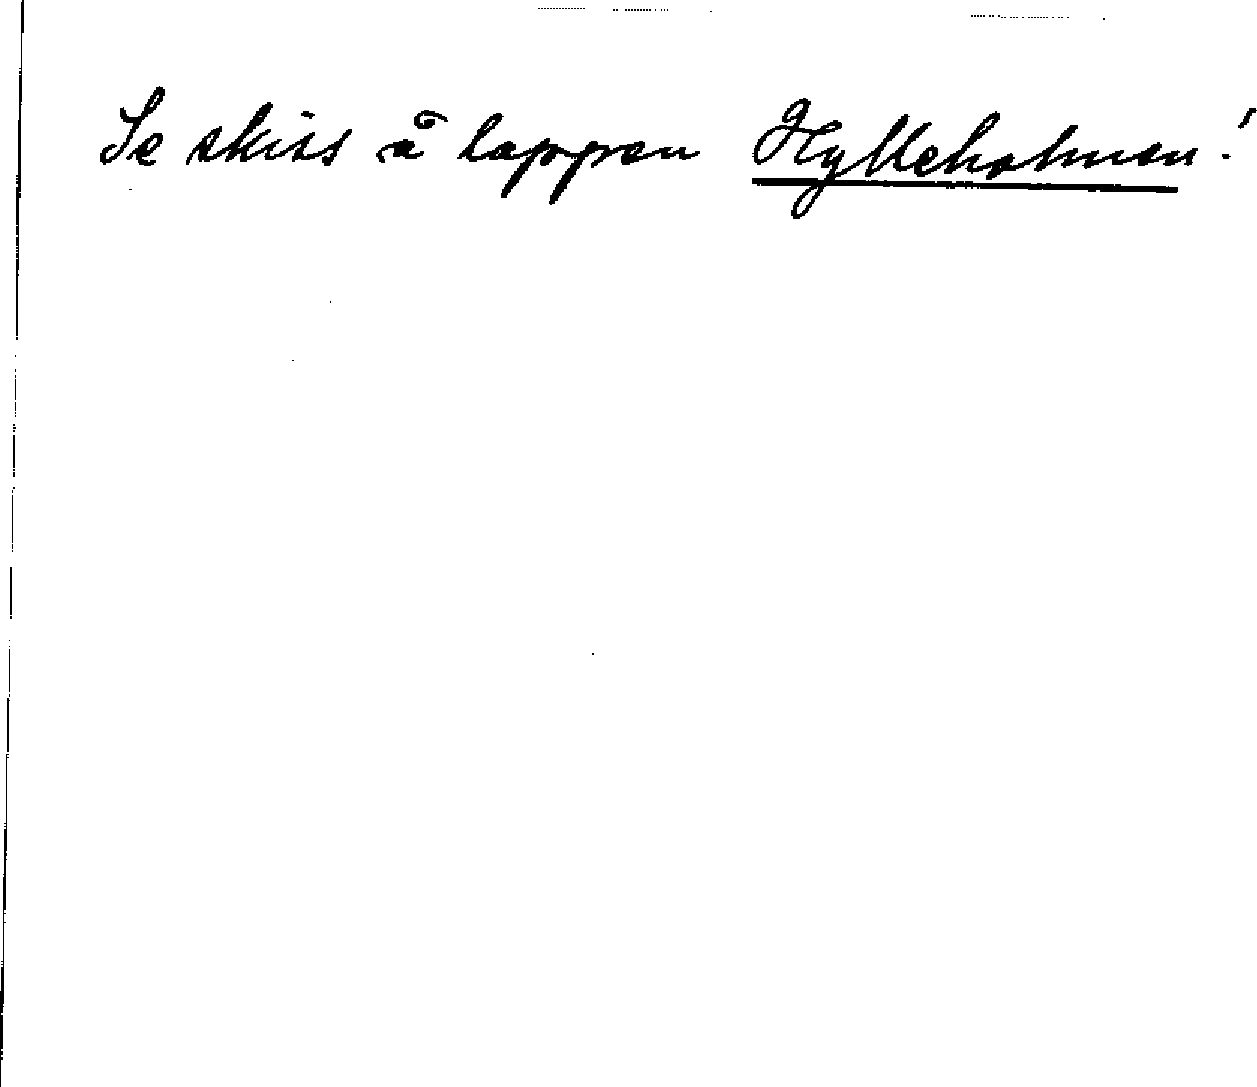 Se skiss å lappen Hylleholmen!